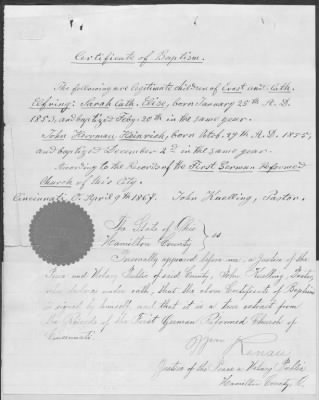 Certificate of Baptism.
The following are legitimate children of Ernst and Cath.
Eifring: Sarah Cath. Elise, born January 25th A.D.
1853, and baptized Feby. 20th in the same year.
John Herrman Heinrich, born Octob. 29th A.D. 1855,
and baptized December 2d in the same year.
According to the Records of the First German Reformed
Church of this City.
Cincinnati O. April 9th 1867. John Kuelling, Pastor.
The State of Ohio
Hamilton County } ss
Personally appeared before me, a Justice of the
Peace and Notary Public of said County, John Kuelling, Pastor,
who declares under oath, that the above Certificate of Baptism
is signed by himself, and that it is a true extract from
the Records of the First German Reformed Church of
Cincinnati.
Wm Renau
Justice of the Peace & Notary Public
Hamilton County O.